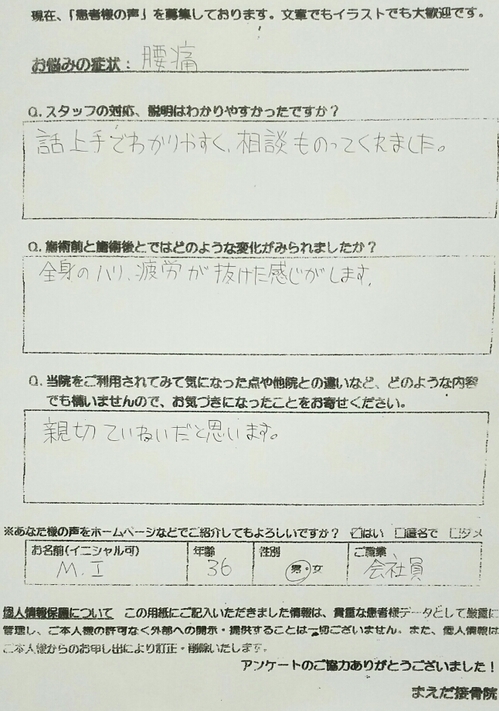 現在、「患者様の声」を募集しております。文章でもイラストでも大歓迎です。
お悩みの症状：腰痛
Q. スタッフの対応、説明はわかりやすかったですか？
話上手でわかりやすく、相談ものってくれました。
Q. 施術前と施術後とではどのような変化がみられましたか？
全身のハリ、疲労が抜けた感じがします。
Q. 当院をご利用されてみて気になった点や他院との違いなど、どのような内容
でも構いませんので、お気づきになったことをお寄せください。
親切ていねいだと思います。
※あなた様の声をホームページなどでご紹介してもよろしいですか？ ☑はい □匿名で □ダメ
お名前(イニシャル可) 年齢 性別 ご職業
M.I 36 男・女 会社員
個人情報保護について この用紙にご記入いただきました情報は、貴重な患者様データとして厳重に
管理し、ご本人様の許可なく外部への開示・提供することは一切ございません。また、個人情報は
ご本人様からのお申し出により訂正・削除いたします。
アンケートのご協力ありがとうございました！
まえだ接骨院